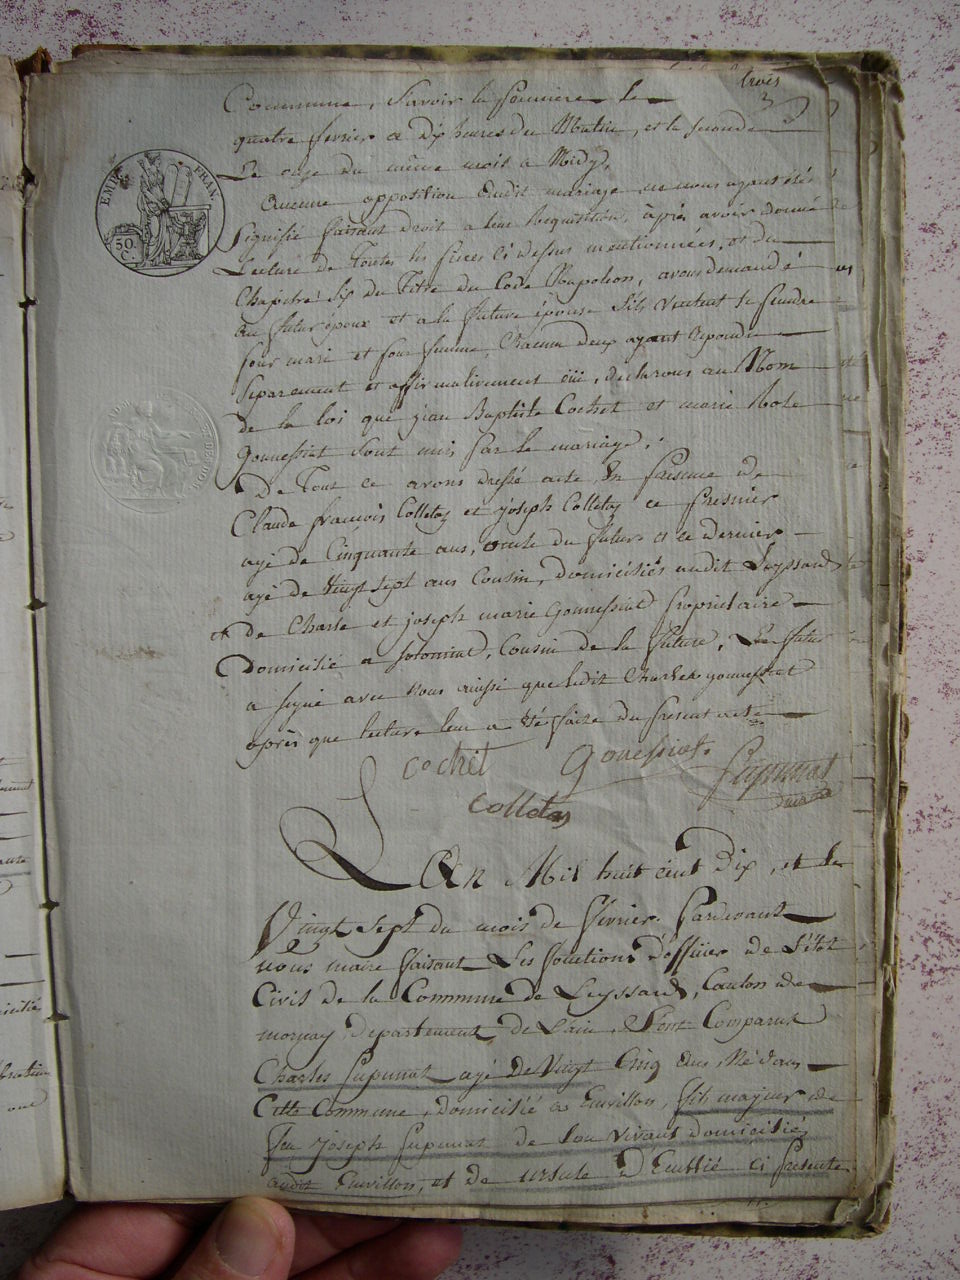 trois
3
Commune, Savoir la premiere le
quatre fevrier a dix heures du Matin, et la seconde
Le onze du même mois a Midy,
Aucune opposition audit mariage ne nous ayant été
Signifié faisant droit a leur Requisition, après avoir donné
Lecture de Toutes les pieces ci dessus mentionnées, et du
Chapitre Six du Titre du Code Napoleon, avons demandé
au futur époux et a la future épouse S'ils veulent se prendre
pour mari et pour femme, Chacun deux ayant repondu
Separement et affirmativement oüi, declarons au Nom
de la loi que jean Baptiste Cochet et marie Rose
gonnessiat Sont unis par le mariage;
De Tout ce avons dressé acte, En presence de
Claude françois Colletaz et joseph Colletaz ce premier
agé de Cinquante ans, oncle du futur et ce dernier
agé de Vingt Sept ans Cousin, domiciliés audit Leyssard
et de Charle et joseph marie Gonnessiat proprietaire
domicilié a Solomiat, Cousin de la future, Le futur
a signé avec Nous ainsi que ledit Charles gonnessiat
après que lecture leur a été faite du present acte
cochet Gonessiat
Colletas
L'an Mil huit cent Dix, et le
Vingt Sept du mois de fevrier, Pardevant
nous maire faisant Les fonctions d'officier de L'état
Civil de la Commune de Leyssard, Canton de
mornay, departement de L'ain, Sont Comparus
Charles Supunat agé de Vingt Cinq ans Né dans
Cette Commune, domicilié a Envillon, fils majeur de
feu joseph Supunat de Son vivant domicilié
audit Envillon, et de ursule ci presente
EMP. FRAN.
50.
C.